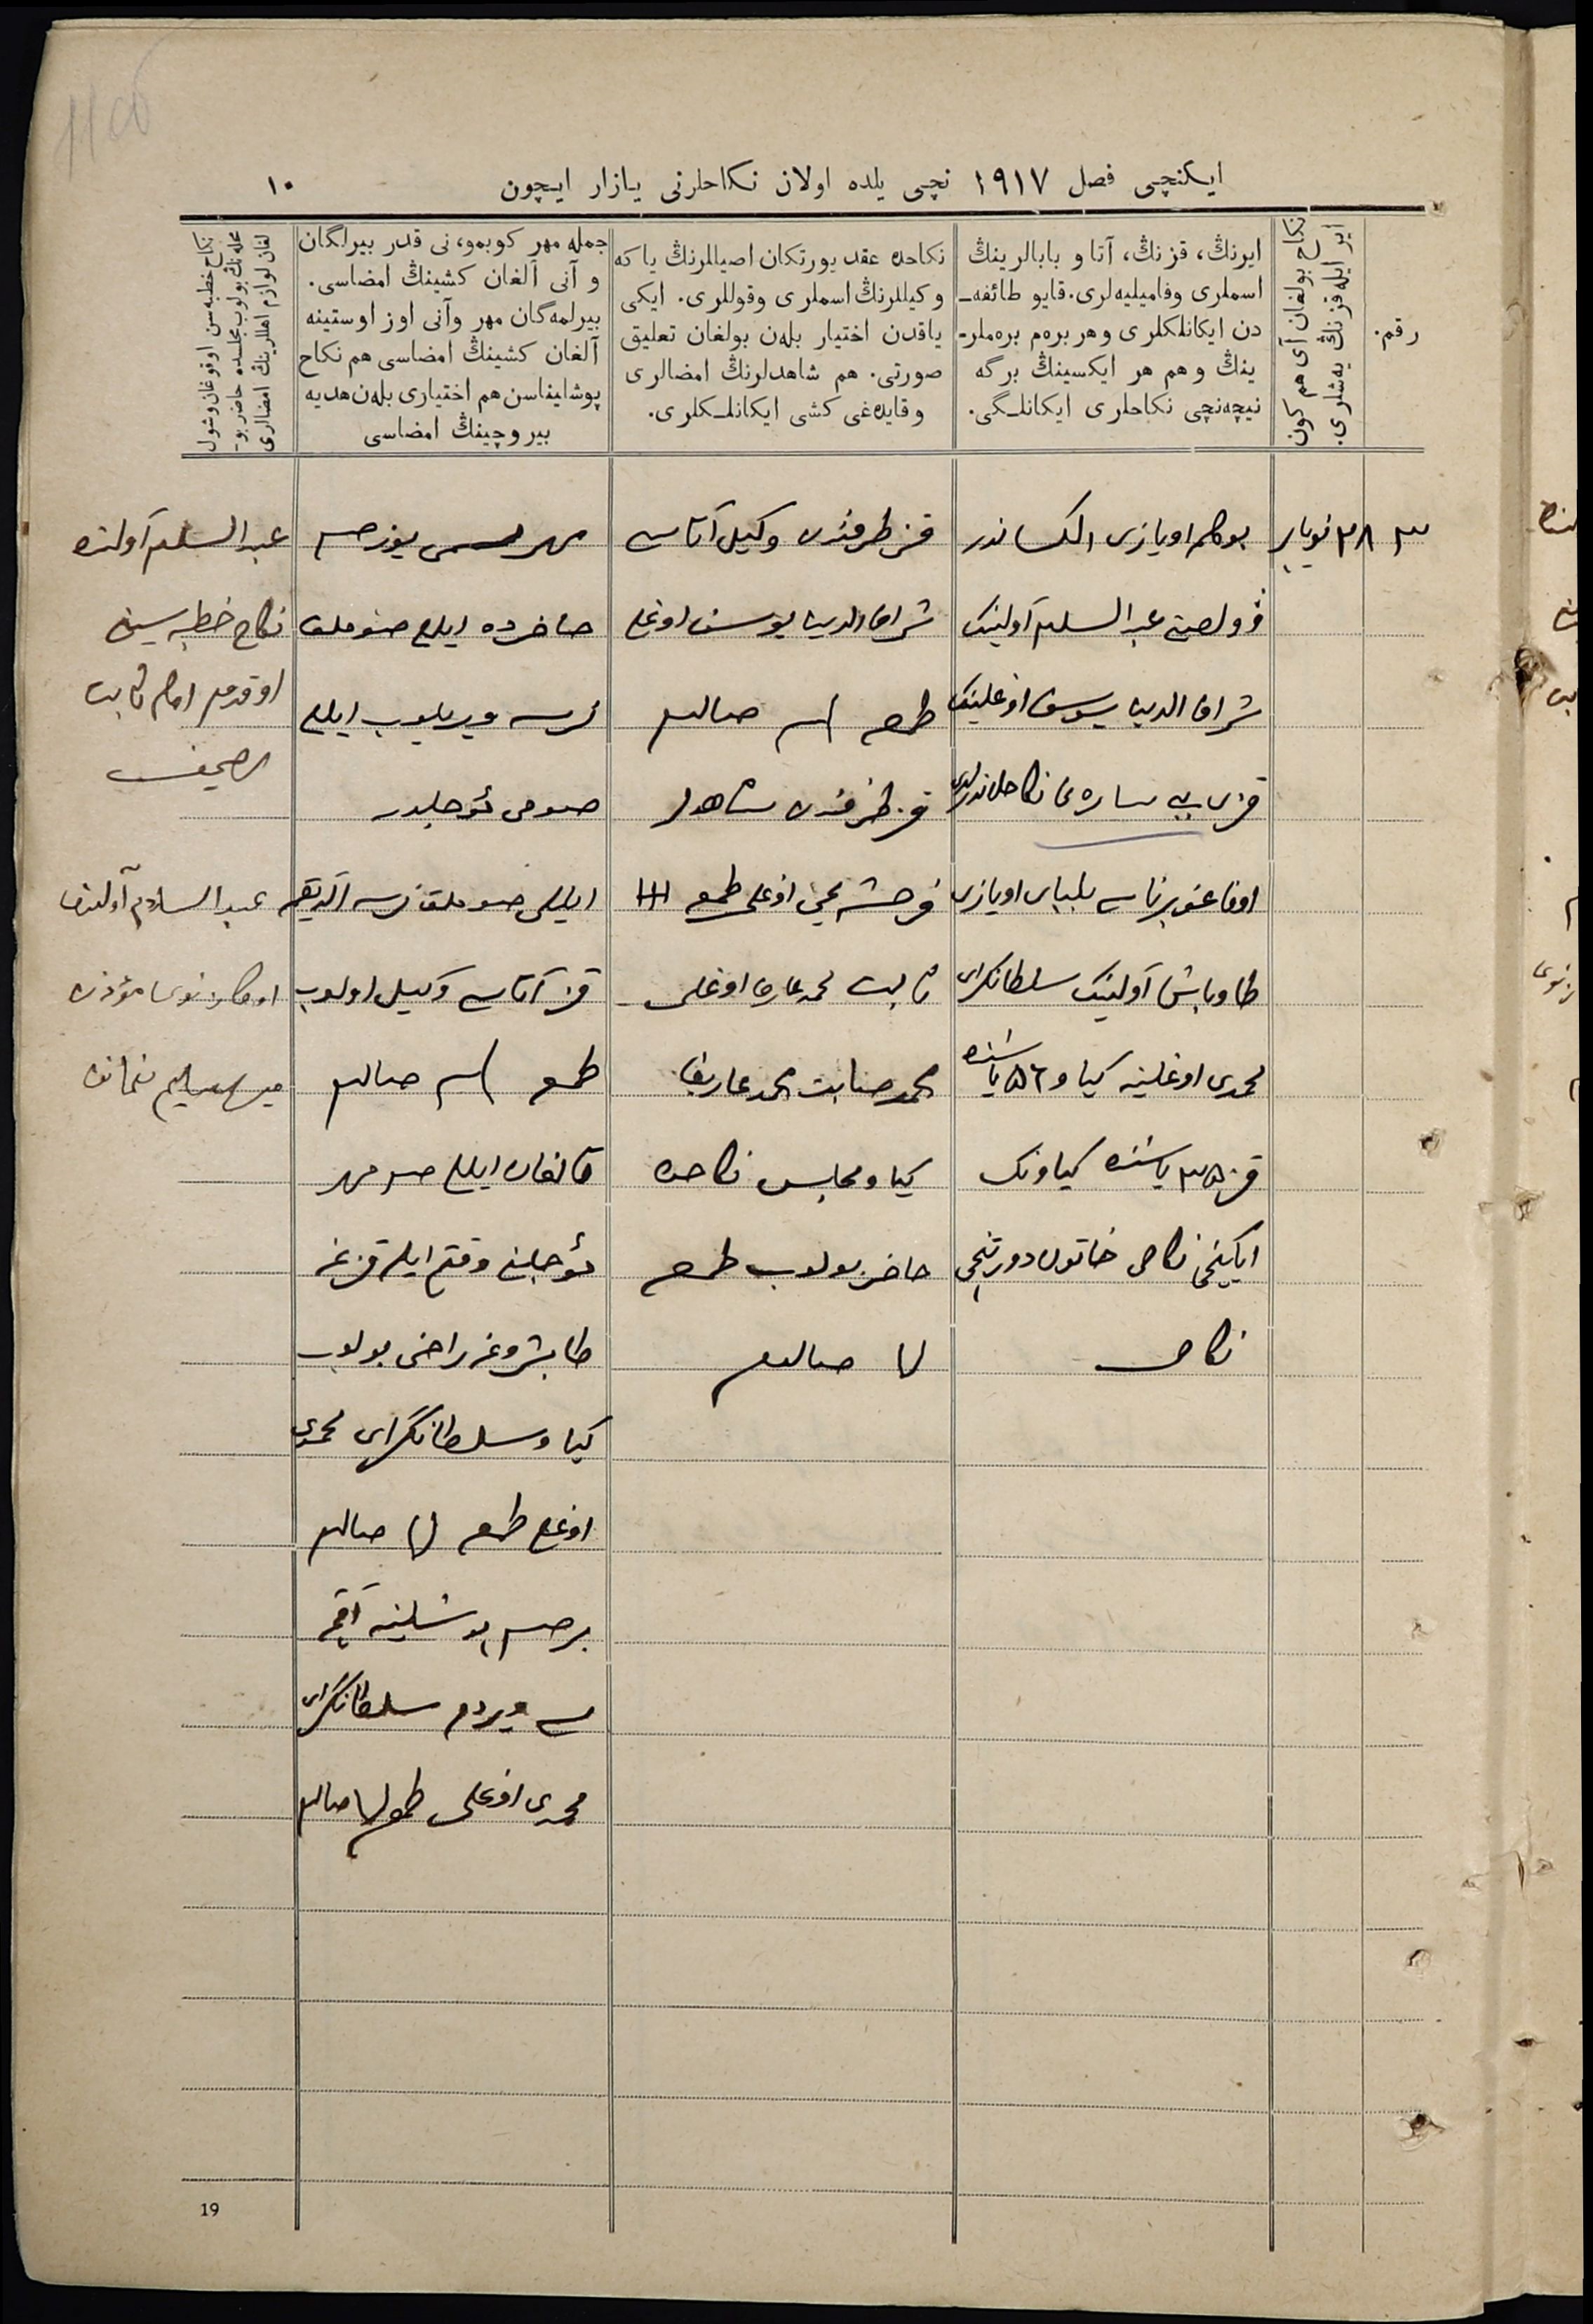 ایکنچی فصل ۱۹۱۷ نچی یلده اولان نکاحلرنی یازار ایچون
۱۰
رقم.
نکاح بولغان آی هم کون
ایر ایله قزنڭ یه‌شلری.
ایرنڭ، قزنڭ، آتا و بابالرینڭ
اسملری وفامیلیه‌لری. قایو طائفه‌ـ
دن ایکانلکلری وهر بره‌م بره‌ملرـ
ینڭ وهم هر ایکسینڭ برگه
نیچه‌نچی نکاحلری ایکانلـگی.
نکاحده عقد یورتکان اصیاللرنڭ یا که
وکیللرنڭ اسملری وقوللری. ایکی
یاقدن اختیار بلەن بولغان تعلیق
صورتی. هم شاهدلرنڭ امضالری
وقایده‌غی کشی ایکانلـکلری.
جمله مهر کوبمو، نی قدر بیرلگان
و آنی آلغان کشینڭ امضاسی.
بیرلمه‌گان مهر وآنی اوز اوستینه
آلغان کشینڭ امضاسی هم نکاح
پوشلیناسن هم اختیاری بلەن هدیه
بیروچینڭ امضاسی
نکاح خطبه‌سن اوقوغان وشول
محله‌نڭ بولوب مجلسده حاضر بوـ
لغان لوازم اهللرینڭ امضالری
۳
۲۸ نویابر
اویازی
عبد السلام آولینک
شراف الدین یوسف اوغلینک
قزی بی ساره نی نکاحلاندردی
اوفا غوبرناسی بلبای اویازی
طاوباش آولینک سلطانکرای
محمدی اوغلینه کیاو ۵۶ یاشنده
قز ۳۵ یاشنده کیاونک
ایکنچی نکاحی خاتون دورتنچی
نکاحی
قز طرفندن وکیل آتاسی
شراف الدین یوسف اوغلی
طمعه صالدم
قز طرفندن شاهدلر
اوغلی طمعه
ثابت محمد عارف اوغلی
محمد ثابت محمد عاریف
کیاو مجلس نکاحده
حاضر بولوب طمعه
صالدم
مهر یوز صوم
حاضرده ایللی صوملق
نرسه ویریلوب ایللی
صومی مؤجلدر
ایللی صوملق نرسه آلدیق
قز آتاسی وکیل اولوب
طمعه صالدم
قالغان ایللی صوم مهر
مؤجلنی وقتی ایله قزغه
طابشروغه راضی بولوب
کیاو سلطانکرای محمدی
اوغلی طمعه صالدم
بر صوم پوشلینه آقچه
سی ویردم سلطانکرای
محمدی اوغلی طمعه صالدم
عبد السلام آولنده
نکاح خطبه سین
اوقدم امام ثابت
عبد السلام آولنده
مؤذن
19